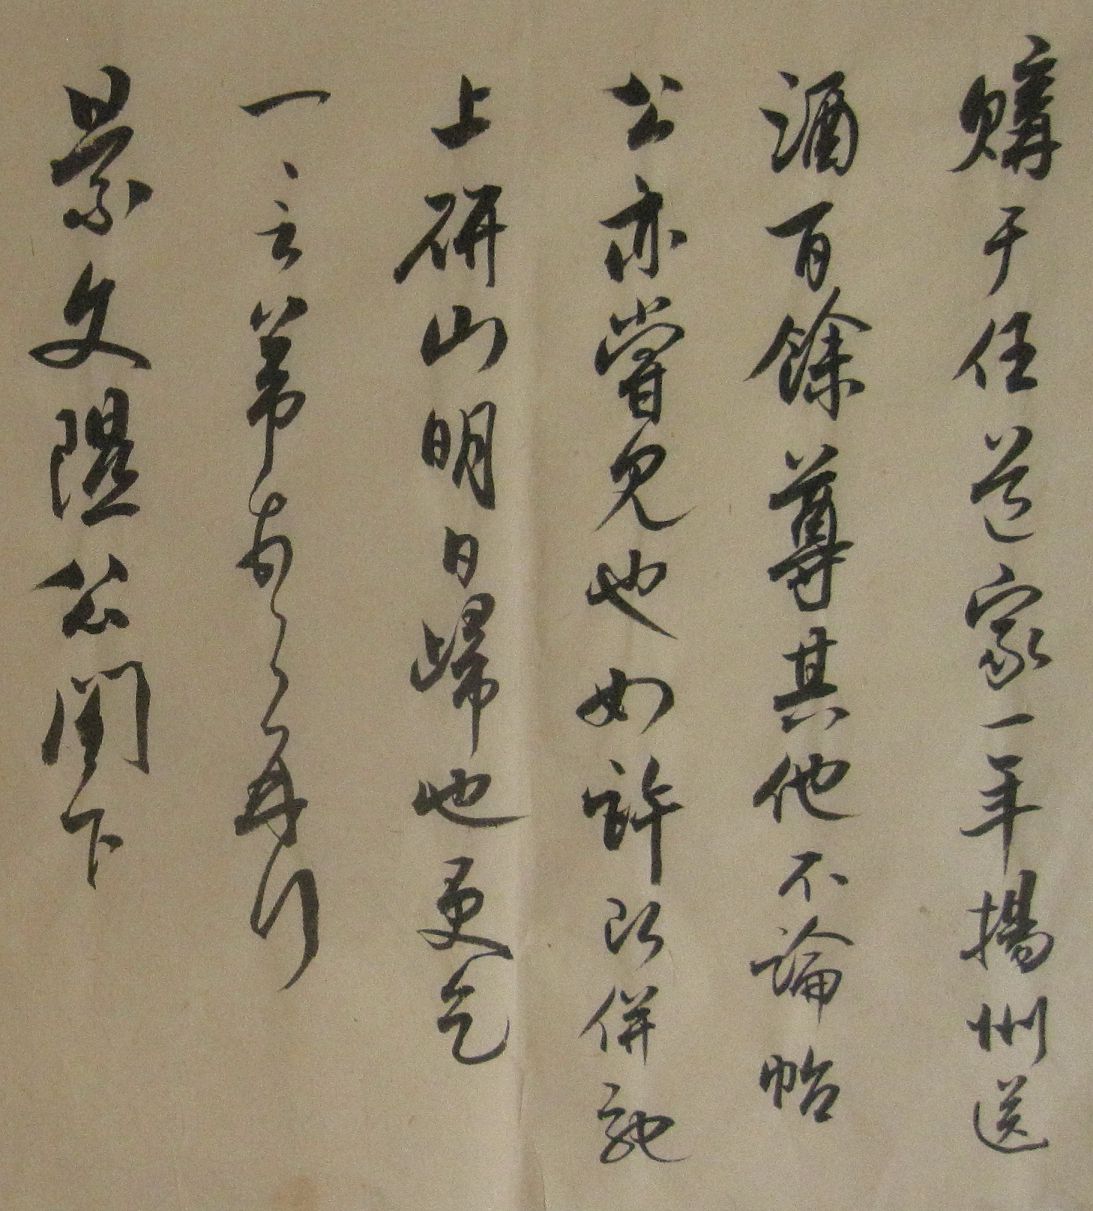 購于任道家一年揚州送
酒百餘尊其他不論帖
公亦嘗見也如許即併馳
上研山明日歸也更乞
一言芾頓首再拜
景文隰公閣下